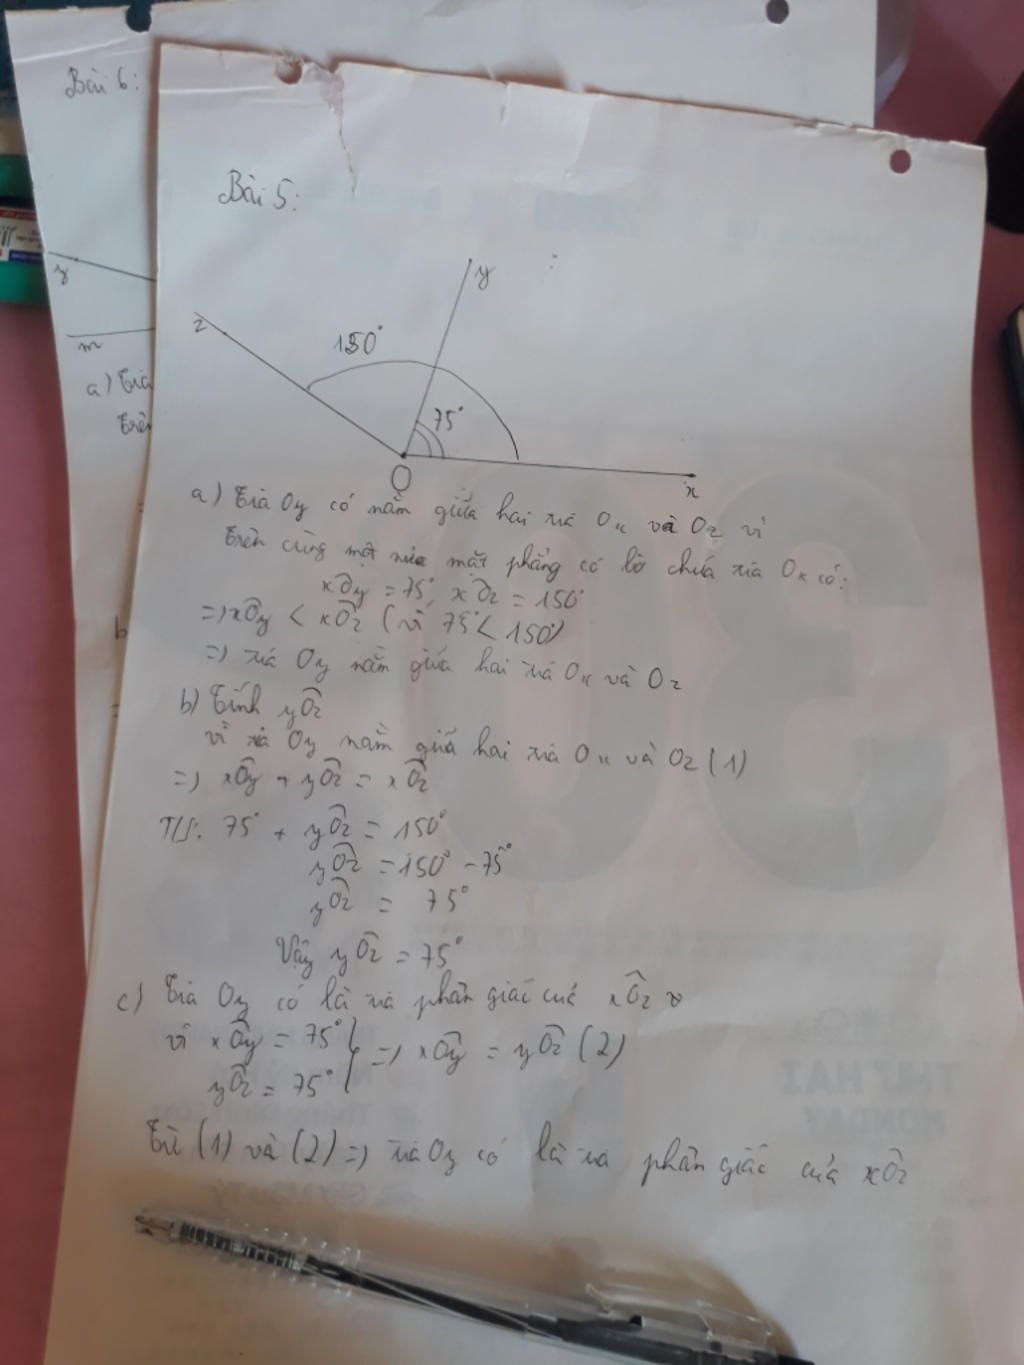 Bài 6:
Bài 5:
y
z
150°
75°
O
x
y
m
a) Tia
Trên
a) Tia Oy có nằm giữa hai tia Ox và Oz vì
Trên cùng một nửa mặt phẳng có bờ chứa tia Ox có:
xÔy = 75°, xÔz = 150°
=> xÔy < xÔz (vì 75° < 150°)
=> tia Oy nằm giữa hai tia Ox và Oz
b
b) Tính yÔz
vì tia Oy nằm giữa hai tia Ox và Oz (1)
=> xÔy + yÔz = xÔz
T/S: 75° + yÔz = 150°
yÔz = 150° - 75°
yÔz = 75°
Vậy yÔz = 75°
c) Tia Oy có là tia phân giác của xÔz
vì xÔy = 75°
yÔz = 75° } => xÔy = yÔz (2)
Từ (1) và (2) => tia Oy có là tia phân giác của xÔz
THỨ HAI
MONDAY
30